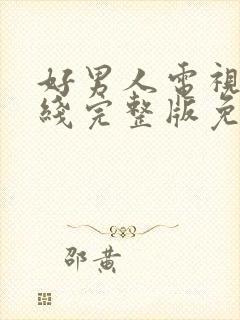 好男人電視
綫完整版免
邵黄